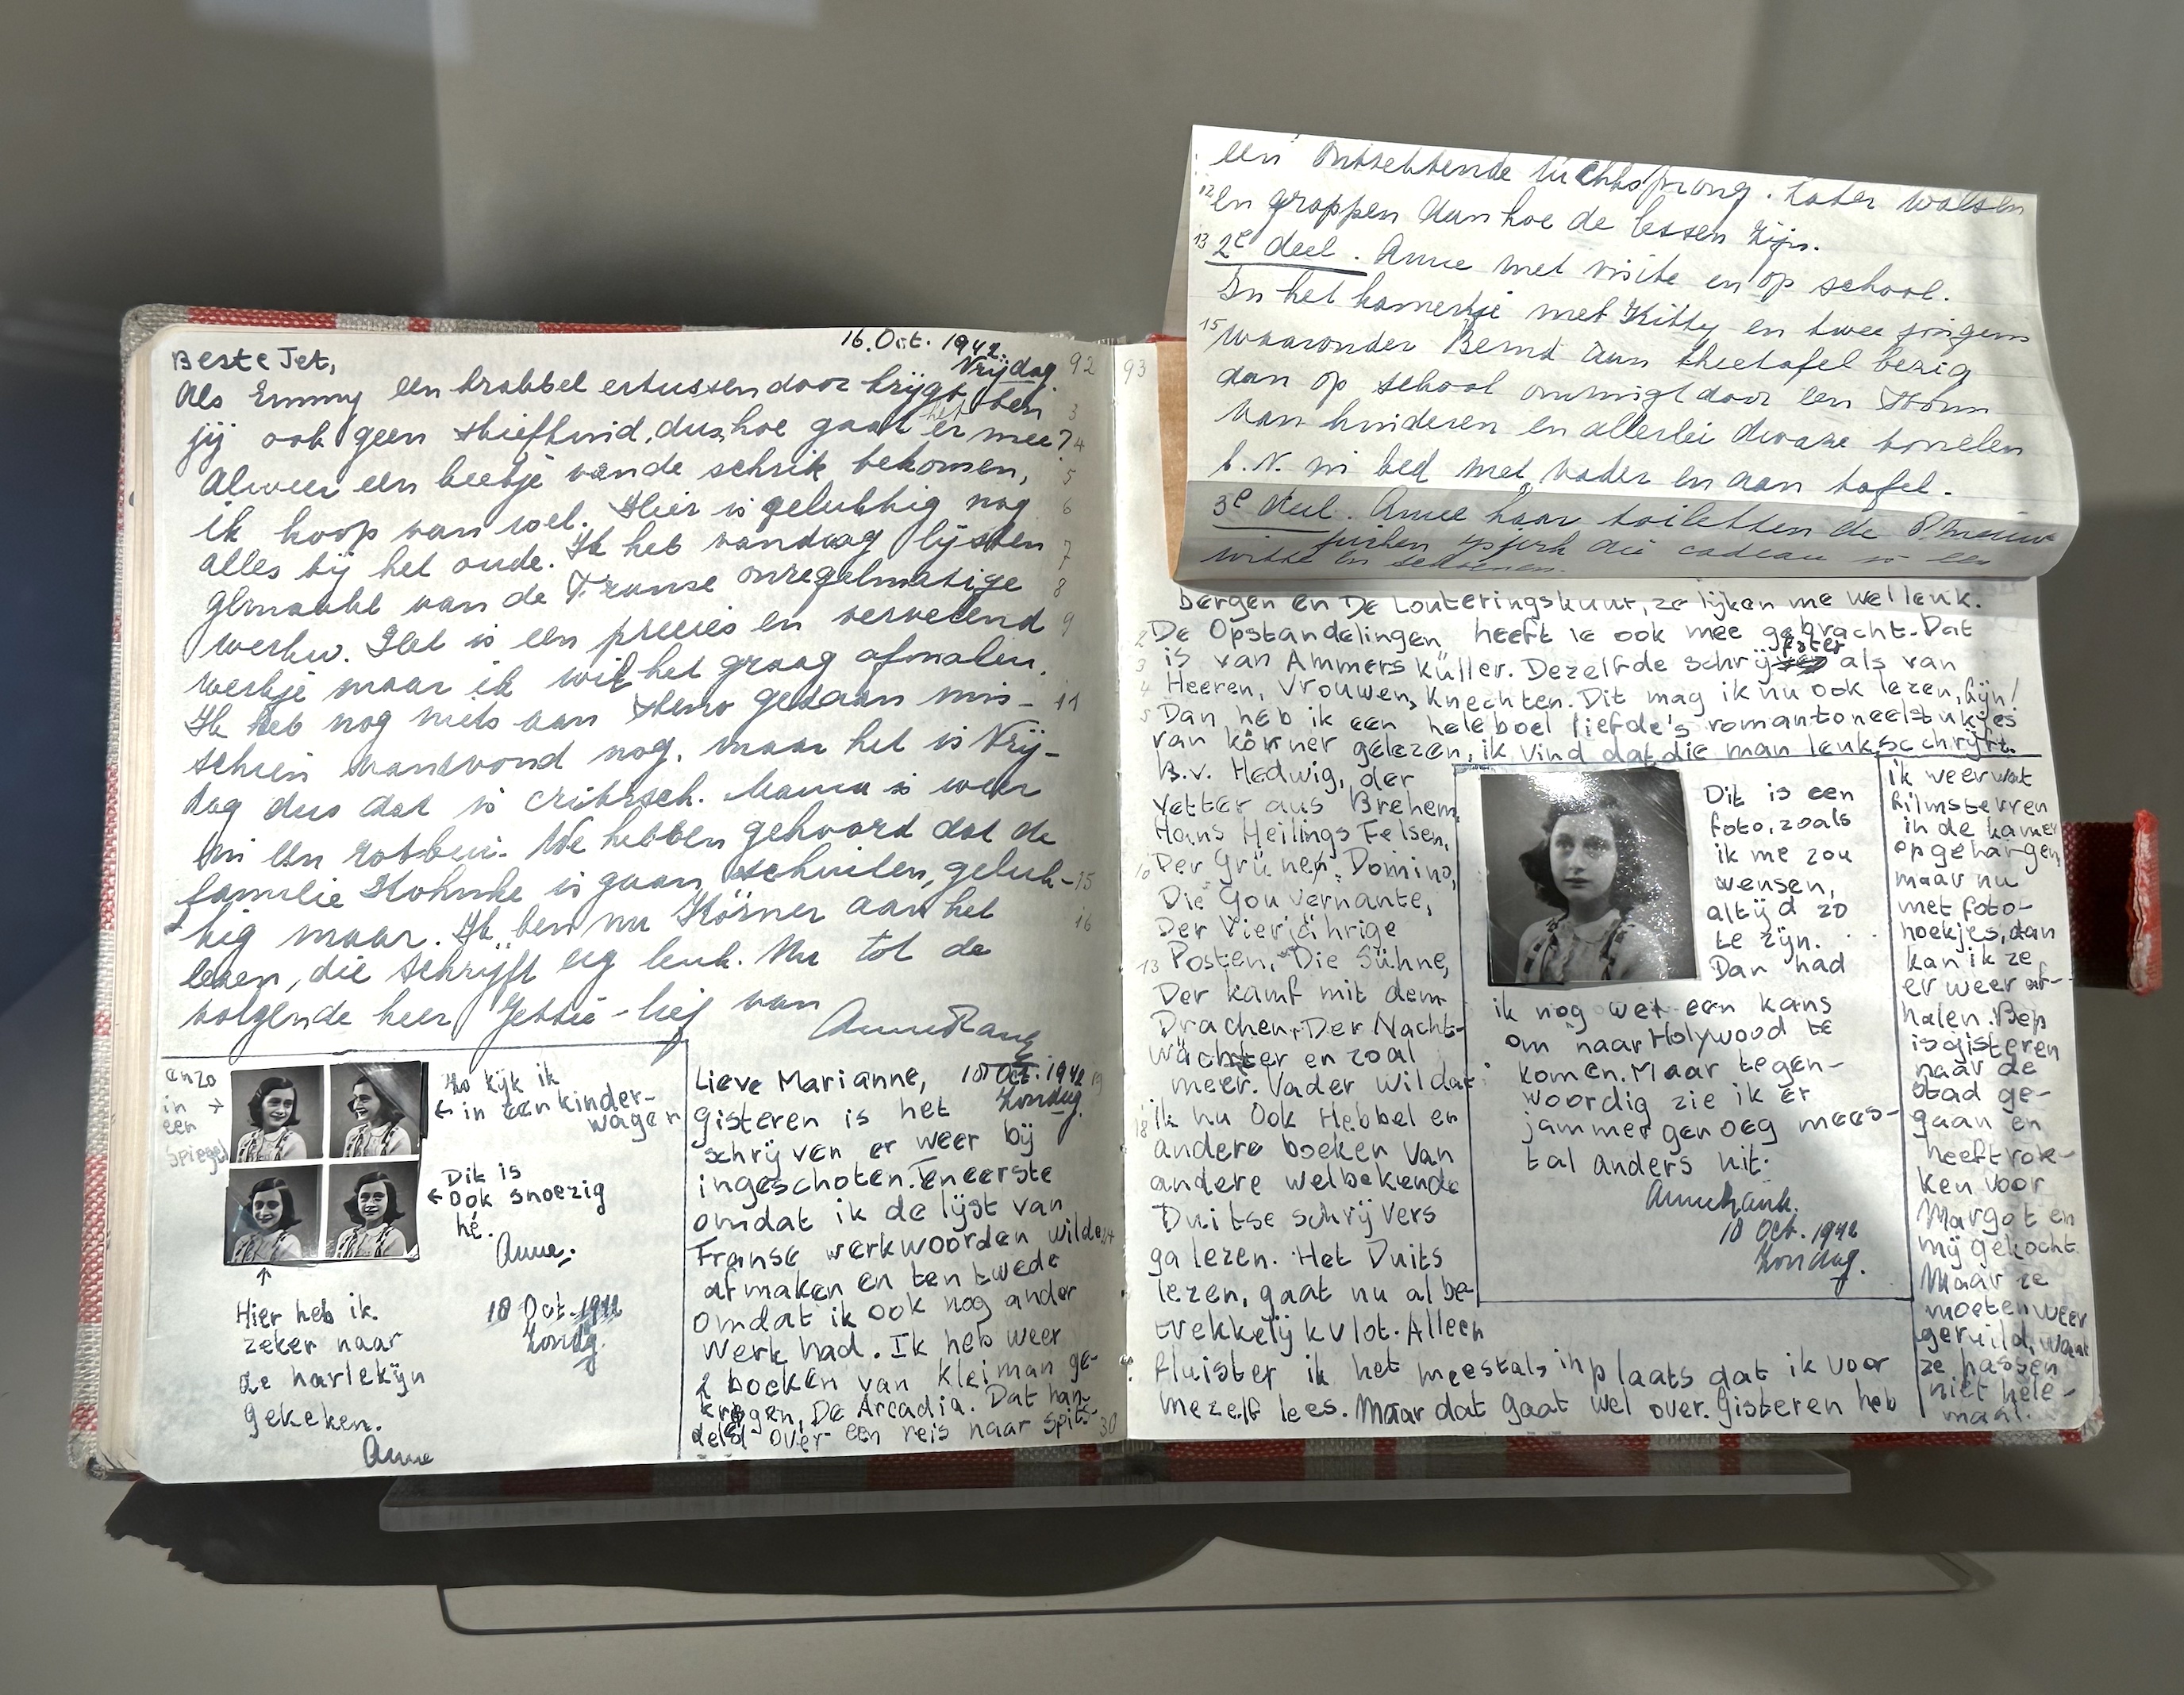 16. Oct. 1942.
Vrijdag
92
Beste Jet,
Als Emmy een krabbel ertussendoor krijgt ben
3
jij ook geen stiefkind, dus, hoe gaat het er mee?
4
Alweer een beetje van de schrik bekomen,
5
ik hoop van wel. Hier is gelukkig nog
6
alles bij het oude. Ik heb vandaag lijsten
7
gemaakt van de Franse onregelmatige
8
werkw. Het is een precies en vervelend
9
werkje maar ik wil het graag afmaken.
Ik heb nog niets aan steno gedaan mis-
11
schien vanavond nog, maar het is Vrij-
dag dus dat is critisch. Mama is weer
in een rotbui. We hebben gehoord dat de
familie Kohnke is gaan schuilen, geluk-
15
kig maar. Ik ben nu Körner aan het
16
lezen, die schrijft erg leuk. Nu tot de
volgende keer Jettie-lief van
Anne Frank
enzo
in →
een
spiegel
Zo kijk ik
← in een kinder-
wagen
Dit is
← ook snoezig
hé.
Anne.
↑
Hier heb ik
zeker naar
de harlekijn
gekeken.
Anne
18 Oct. 1942
Zondag.
Lieve Marianne,
18 Oct. 1942
19
Zondag.
Gisteren is het
schrijven er weer bij
ingeschoten. Teneerste
omdat ik de lijst van
Franse werkwoorden wilde
24
afmaken en ten twede
omdat ik ook nog ander
werk had. Ik heb weer
2 boeken van Kleiman ge-
kregen, De Arcadia. Dat han-
deld over een reis naar Spits-
30
93
een ontzettende luchtsprong. Later walsen
12
en grappen dan hoe de lessen zijn.
13
2e deel. Anne met visite en op school.
In het kamertje met Kitty en twee jongens
15
waaronder Bernd aan theetafel bezig
dan op school omringt door een storm
van kinderen en allerlei dwaze tonelen
b.v. in bed met vader en aan tafel.
3e deel. Anne haar toiletten de 8 nieuwe
cadeau is een
witte en schoenen.
bergen en De Louteringskuur, ze lijken me wel leuk.
2
De Opstandelingen heeft ie ook mee gebracht. Dat
3
is van Ammers küller. Dezelfde schrijfster als van
4
Heeren, Vrouwen, Knechten. Dit mag ik nu ook lezen, fijn!
5
Dan heb ik een heleboel liefde's romantoneelstukjes
van körner gelezen, ik vind dat die man leuk schrijft.
B.v. Hedwig, der
Vetter aus Brehem,
Hans Heilings Felsen,
10
Der Grünen Domino,
Die Gouvernante,
Der Vierjährige
13
Posten, Die Sühne,
Der kamf mit dem
Drachen, Der Nacht-
wächter en zoal
meer. Vader wil dat
18
ik nu ook Hebbel en
andere boeken van
andere welbekende
Duitse schrijvers
ga lezen. Het Duits
lezen, gaat nu al be-
trekkelijk vlot. Alleen
fluister ik het meestals inplaats dat ik voor
mezelf lees. Maar dat gaat wel over. Gisteren heb
Dit is een
foto, zoals
ik me zou
wensen,
altijd zo
te zijn.
Dan had
ik nog wel een kans
om naar Holywood te
komen. Maar tegen-
woordig zie ik er
jammer genoeg mees-
tal anders uit.
Annefrank.
18 Oct. 1942
Zondag.
ik weer wat
filmsterren
in de kamer
opgehangen,
maar nu
met foto-
hoekjes, dan
kan ik ze
er weer af-
halen. Bep
is gisteren
naar de
stad ge-
gaan en
heeft rok-
ken voor
Margot en
mij gekocht.
Maar ze
moeten weer
geruild, want
ze passen
niet hele-
maal.